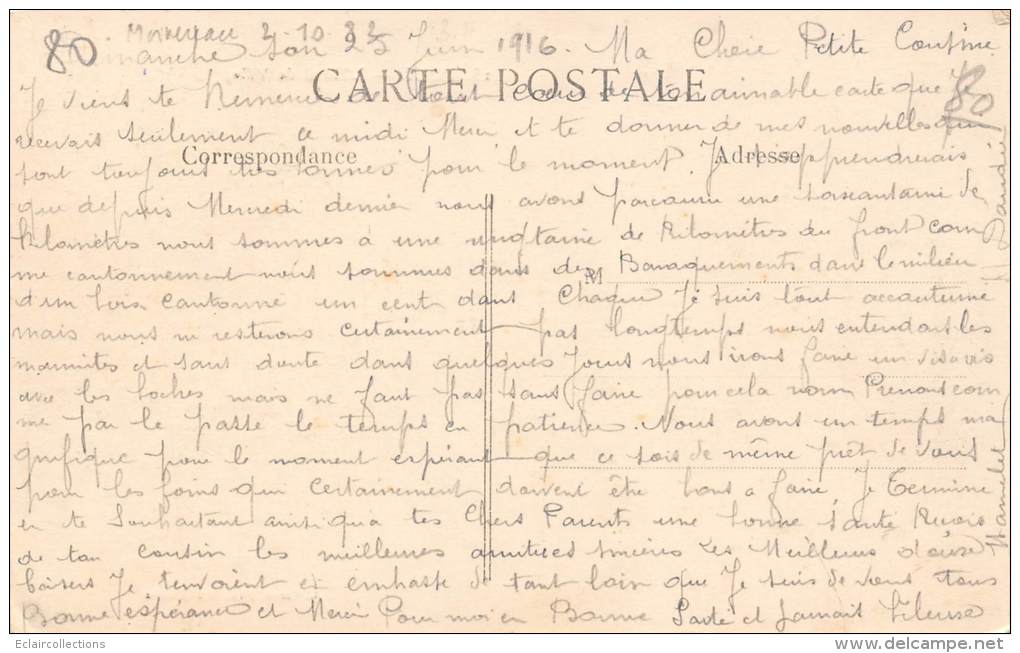 80 2.10.33
Dimanche soir 25 Juin 1916. Ma Chère Petite Cousine
CARTE POSTALE
Je viens te Remercie de tout cœur de ton aimable carte que Je 80
recevais seulement ce midi Merci et te donner de mes nouvelles qui
Correspondance Adresse
sont toujours très bonnes pour le moment. Je t'apprendrerais
que depuis Mercredi dernier nous avons parcouru une soixantaine de
Kilomètres nous sommes à une vingtaine de Kilomètres du front com
me cantonnement nous sommes dans des Baraquements dans le milieu
M
d'un bois cantonné un cent dans Chaque Je suis tout accoutumé
mais nous n'y resterons certainement pas longtemps nous entendons les
marmites et sans doute dans quelques Jours nous irons faire un vis à vis
avec les boches mais ne faut pas s'en faire pour cela nom Prenons com
me par le passé le temps en patience. Nous avons un temps ma
gnifique pour le moment espérant que ce sois de même prêt de vous
pour les foins qui certainement doivent être bons a faire, Je Termine
en te Souhaitant ainsi qu'a tes Chers Parents une bonne santé Reçois
de ton cousin les meilleures amitiés sincères Les Meilleurs doux
baisers Je t'envoient et embrasse de tant loin que Je suis de vous tous
Bonne espérance et Merci Pour moi en Bonne Santé et Jamais
Eclaircollections
www.delcampe.net